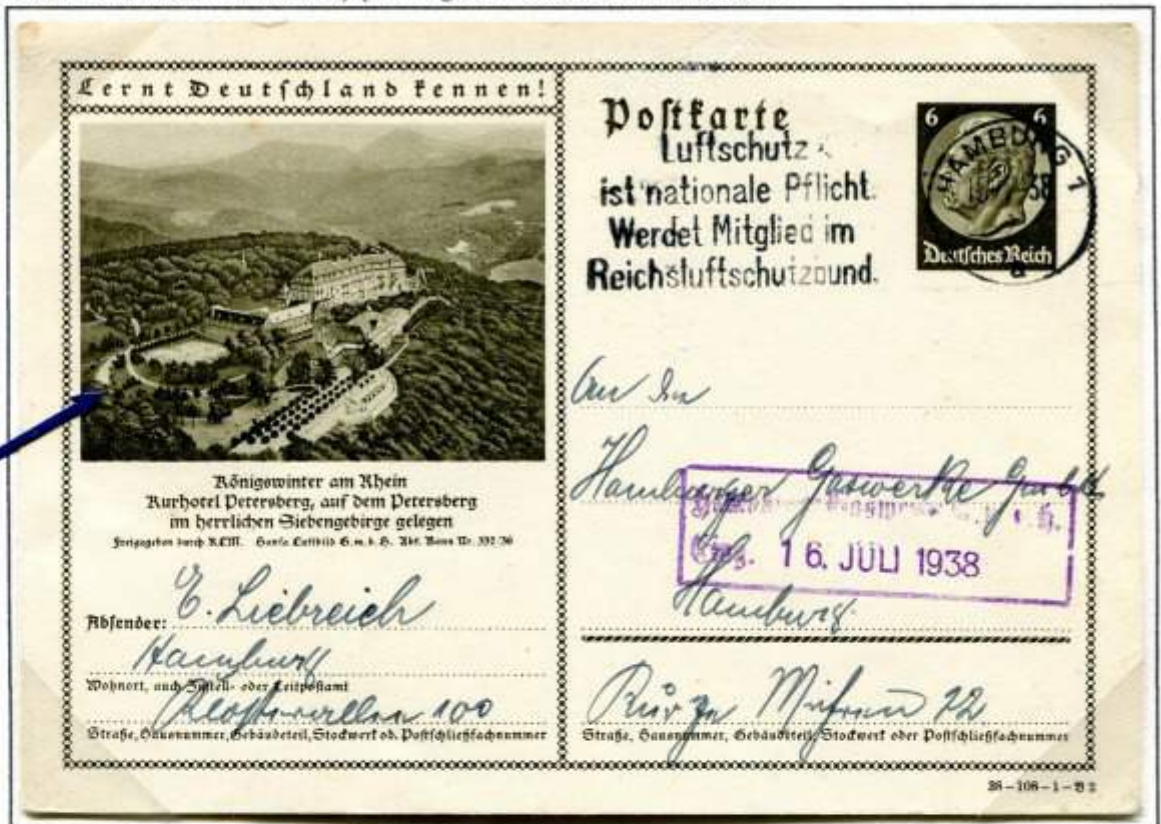 Lernt Deutschland kennen!
Königswinter am Rhein
Kurhotel Petersberg, auf dem Petersberg
im herrlichen Siebengebirge gelegen
Freigegeben durch R.L.M. Hansa Luftbild G.m.b.H. Abt. Bonn Nr. 392/36
Absender: E. Liebreich
Hamburg
Wohnort, auch Zustell- oder Leitpostamt
Klosterallee 100
Straße, Hausnummer, Gebäudeteil, Stockwerk od. Postschließfachnummer
Postkarte
Luftschutz
ist nationale Pflicht.
Werdet Mitglied im
Reichsluftschutzbund.
6 6
HAMBURG 1
38
a
Deutsches Reich
An den
Hamburger Gaswerke GmbH
Eing. 16. JULI 1938
Hamburg
22
Straße, Hausnummer, Gebäudeteil, Stockwerk oder Postschließfachnummer
38-108-1-B 2